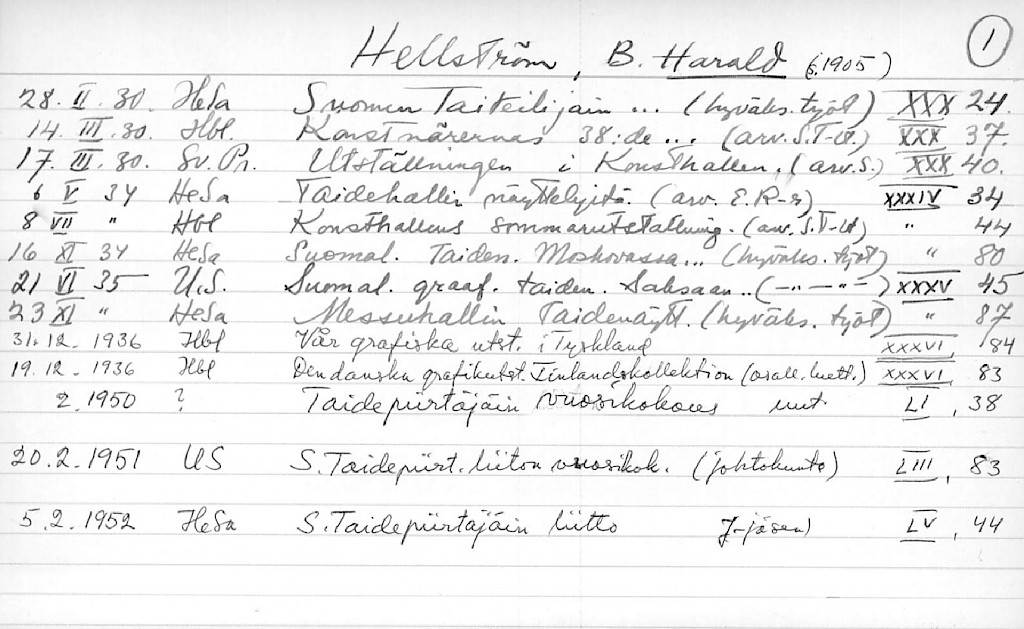 Hellström, B. Harald (s. 1905) 1
28. II. 30. HeSa Suomen Taiteilijain ... (hyväks. työt) XXX 24.
14. III. 30. Hbl. Konstnärernas 38:de ... (arv. S.T-ll.) XXX 37.
17. III. 30. Sv. Pr. Utställningen i Konsthallen. (arv. S.) XXX 40.
6 V 34 HeSa Taidehallin näyttelyitä. (arv. E. R-r) XXXIV 34
8 VII " Hbl Konsthallens sommarutställning. (arv. S.T-ll) " 44
16 XI 34 HeSa Suomal. Taiden. Moskovassa... (hyväks. työt) " 80
21 VI 35 U.S. Suomal. graaf. taiden. Saksaan.. (-"-—"-) XXXV 45
23 XI " HeSa Messuhallin Taidenäytt. (hyväks. työt) " 87
31.12. 1936 Hbl Vår grafiska utst. i Tyskland XXXVI, 84
19.12. 1936 Hbl Den danska grafikutst. Finlandskollektion (osall. luett.) XXXVI, 83
2. 1950 ? Taidepiirtäjäin vuosikokous uut. LI, 38
20.2.1951 US S. Taidepiirt. liiton vuosikok. (johtokunta) LIII, 83
5.2.1952 HeSa S. Taidepiirtäjäin liitto J-jäsen) LV, 44